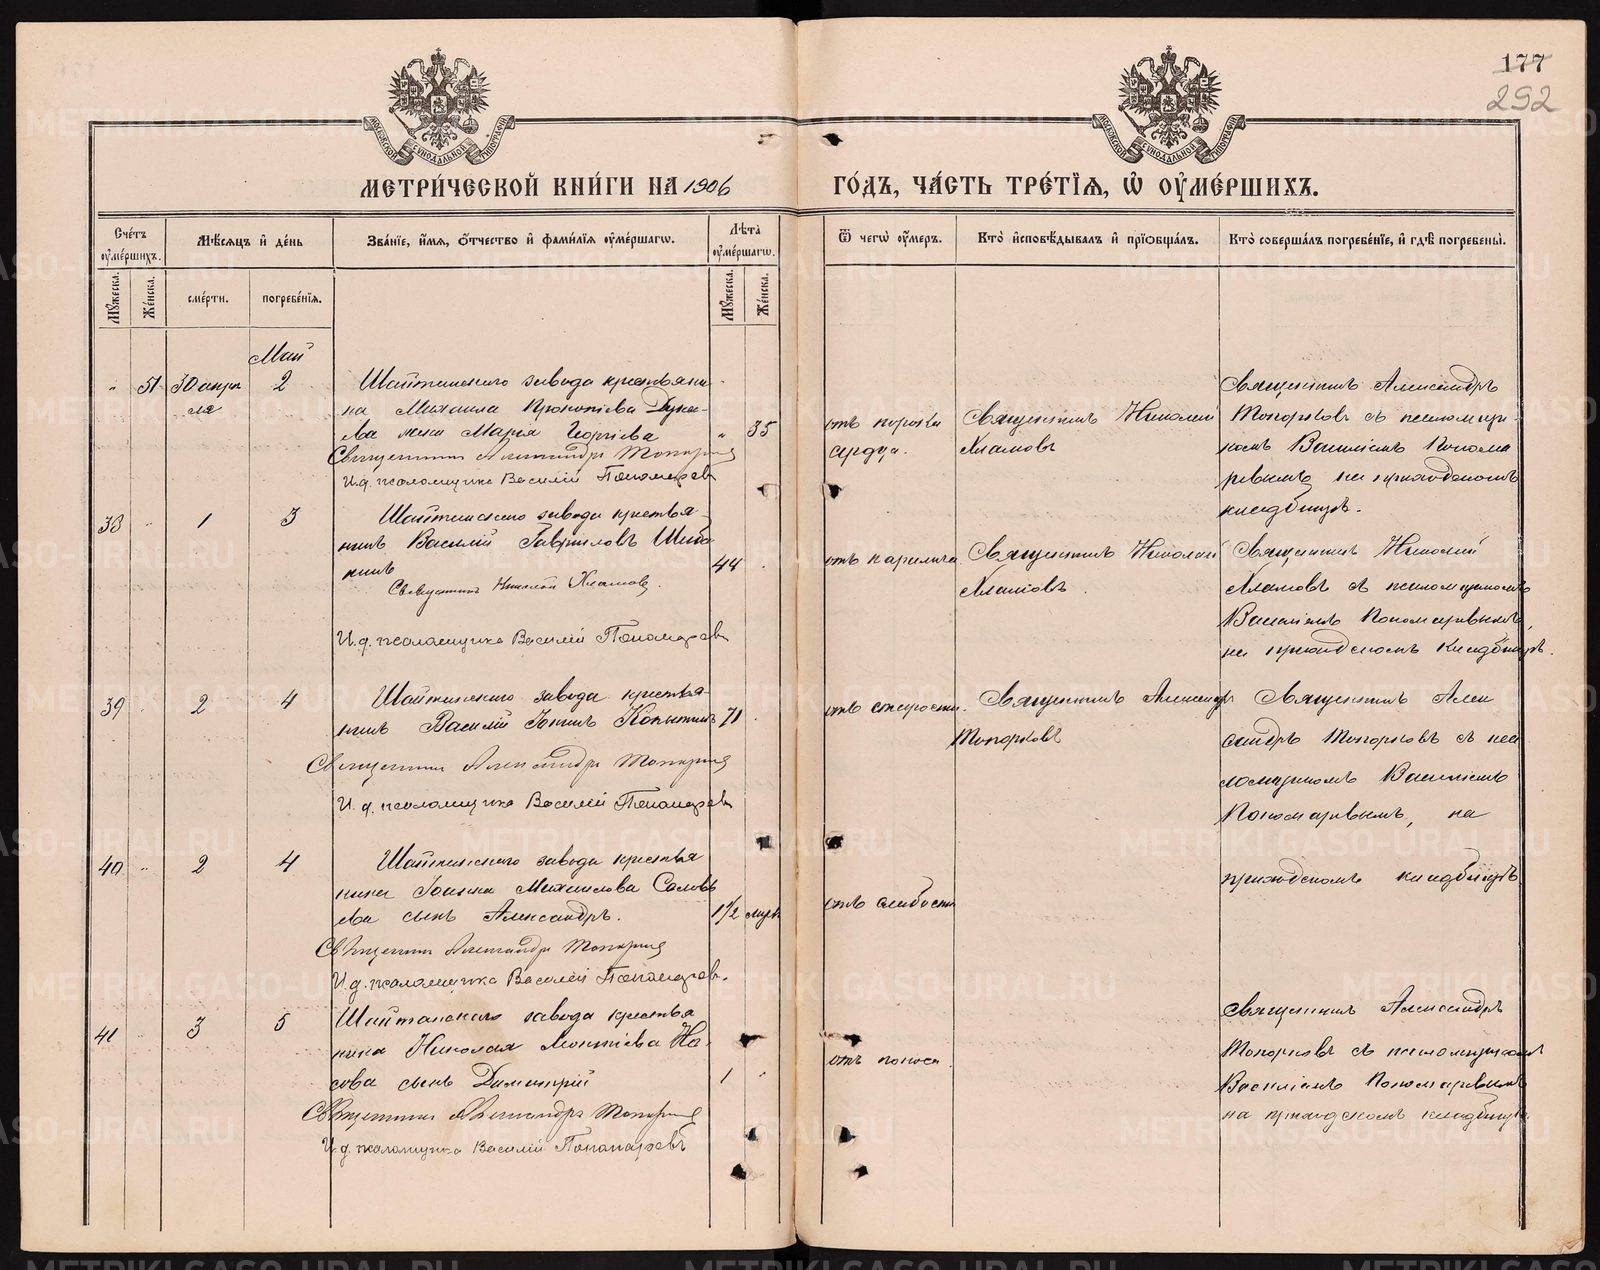 177
292
МЕТРИ́ЧЕСКОЙ КНИ́ГИ НА 1906
ГО́ДЪ, ЧА́СТЬ ТРЕ́ТІѦ, Ѽ ОУ҆МЕ́РШИХЪ.
Сче́тъ оу҆ме́ршихъ.
Мѣ́сѧцъ и҆ де́нь
Зва́нїе, и҆́мѧ, ѻ҆́тчество и҆ фами́лїѧ оу҆ме́ршагѡ.
Лѣ́та оу҆ме́ршагѡ.
Ѿ чегѡ̀ оу҆́меръ.
Кто̀ и҆сповѣ́дывалъ и҆ прїѡбща́лъ.
Кто̀ соверша́лъ погребе́нїе, и҆ гдѣ̀ погребены̀.
Мꙋ́жеска.
Же́нска.
сме́рти.
погребе́нїѧ.
Мꙋ́жеска.
Же́нска.
Май
" 51 30 апре
ля
2
Шайтанскаго завода крестьяни-
на Михаила Прокопіева
жена Марія Георгіева
" 35
Священникъ Александръ Топорковъ
И.д. псаломщика Василій Пономаревъ
отъ порока
сердца.
Священникъ Николай
Хламовъ
Священникъ Александръ
Топорковъ съ псаломщи-
комъ Василіемъ Понома
ревымъ на приходскомъ
кладбищѣ.
38 " 1 3
Шайтанскаго завода крестья-
нинъ Василій Гавриловъ Шиба
нинъ
44
Священникъ Николай Хламовъ.
И.д. псаломщика Василій Пономаревъ
Священникъ Николай
Хламовъ.
Священникъ Николай
Хламовъ съ псаломщикомъ
Василіемъ Пономаревымъ,
на приходскомъ кладбищѣ.
39 " 2 4
Шайтанскаго завода крестья-
нинъ Василій Копытинъ
71
Священникъ Александръ Топорковъ
И.д. псаломщика Василій Пономаревъ
отъ старости.
Священникъ Александръ
Топорковъ
Священникъ Алек
сандръ Топорковъ съ пса
ломщикомъ Василіемъ
Пономаревымъ, на
приходскомъ кладбищѣ.
40 " 2 4
Шайтанскаго завода крестья
нина Іоанна Михаилова Соловь
ева сынъ Александръ.
1 1/2 мѣс
Священникъ Александръ Топорковъ
И.д. псаломщика Василій Пономаревъ.
отъ слабости
41 3 5
Шайтанскаго завода крестья
нина Николая Леонтіева На-
сова сынъ Димитрій
1 "
Священникъ Александръ Топорковъ
И.д. псаломщика Василій Пономаревъ
отъ поноса
Священникъ Александръ
Топорковъ съ псаломщикомъ
Василіемъ Пономаревымъ
на приходскомъ кладбищѣ.
METRIKI.GASO-URAL.RU